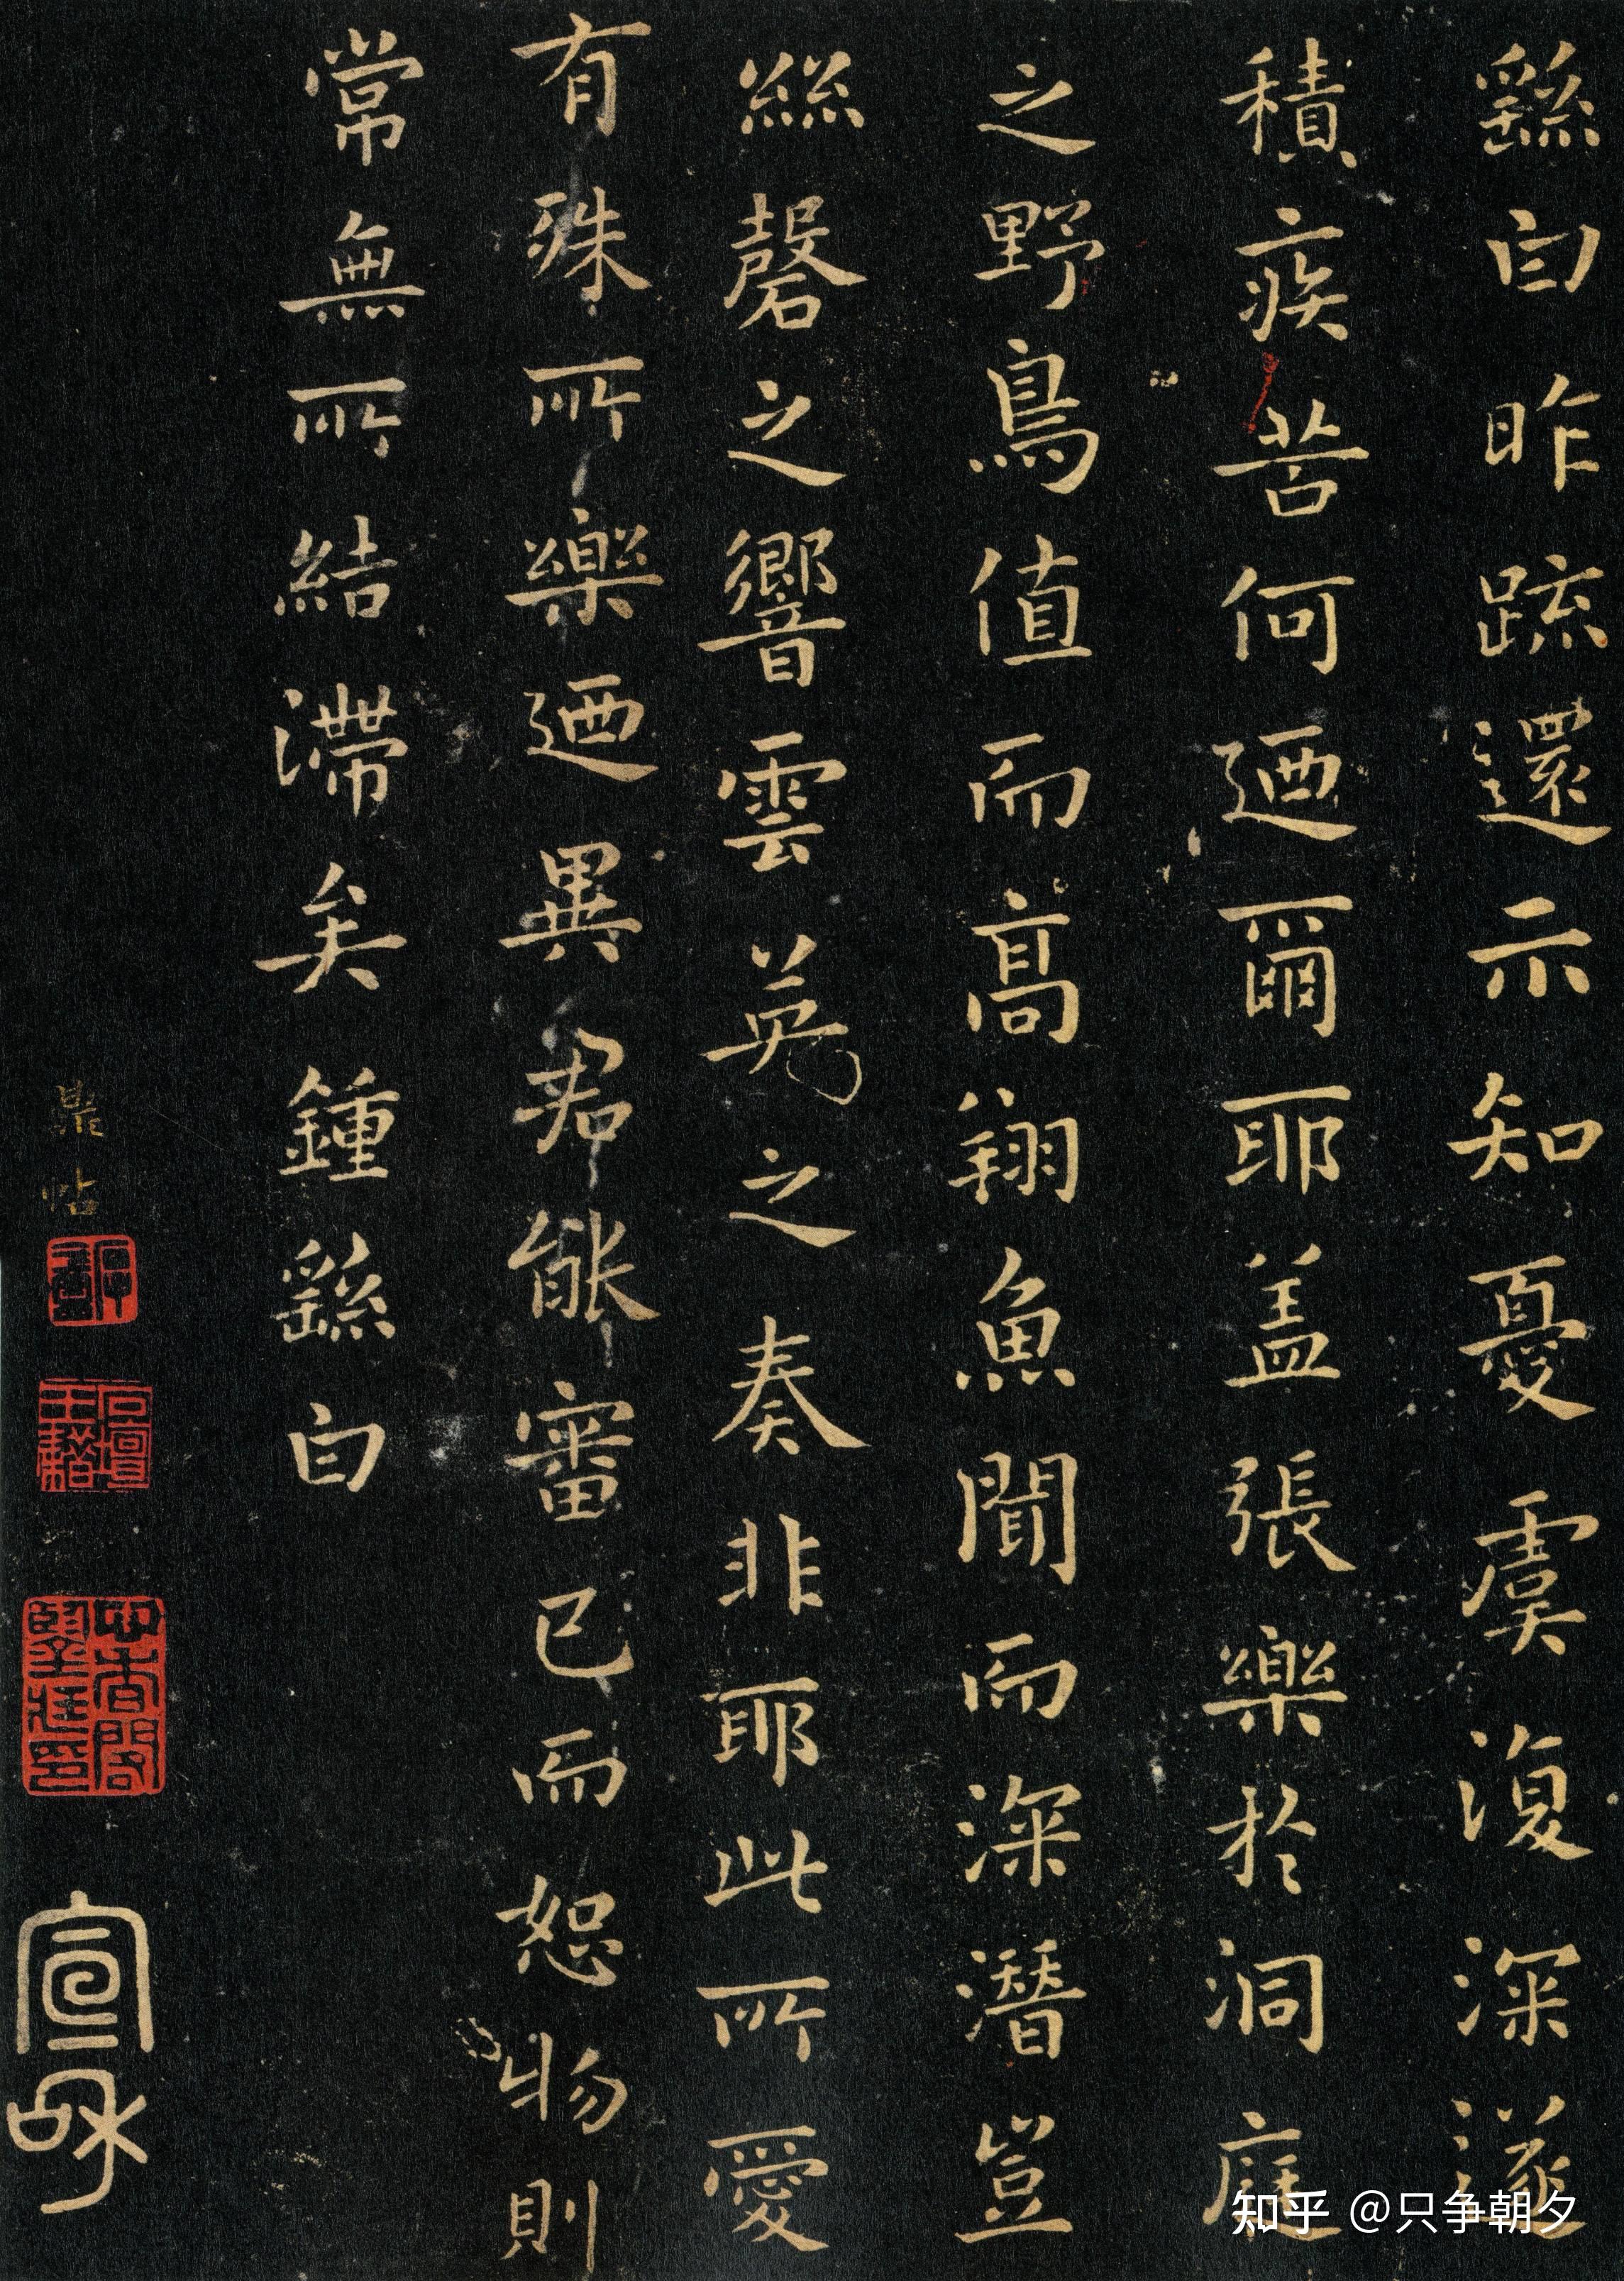 繇白昨疏還示知憂虞復深遂
積疾苦何迺爾耶蓋張樂於洞庭
之野鳥值而高翔魚聞而深潛豈
絲磬之響雲英之奏非耶此所愛
有殊所樂迺異君能審己而恕物則
常無所結滯矣鍾繇白
鼎帖
宣和
知乎 @只争朝夕